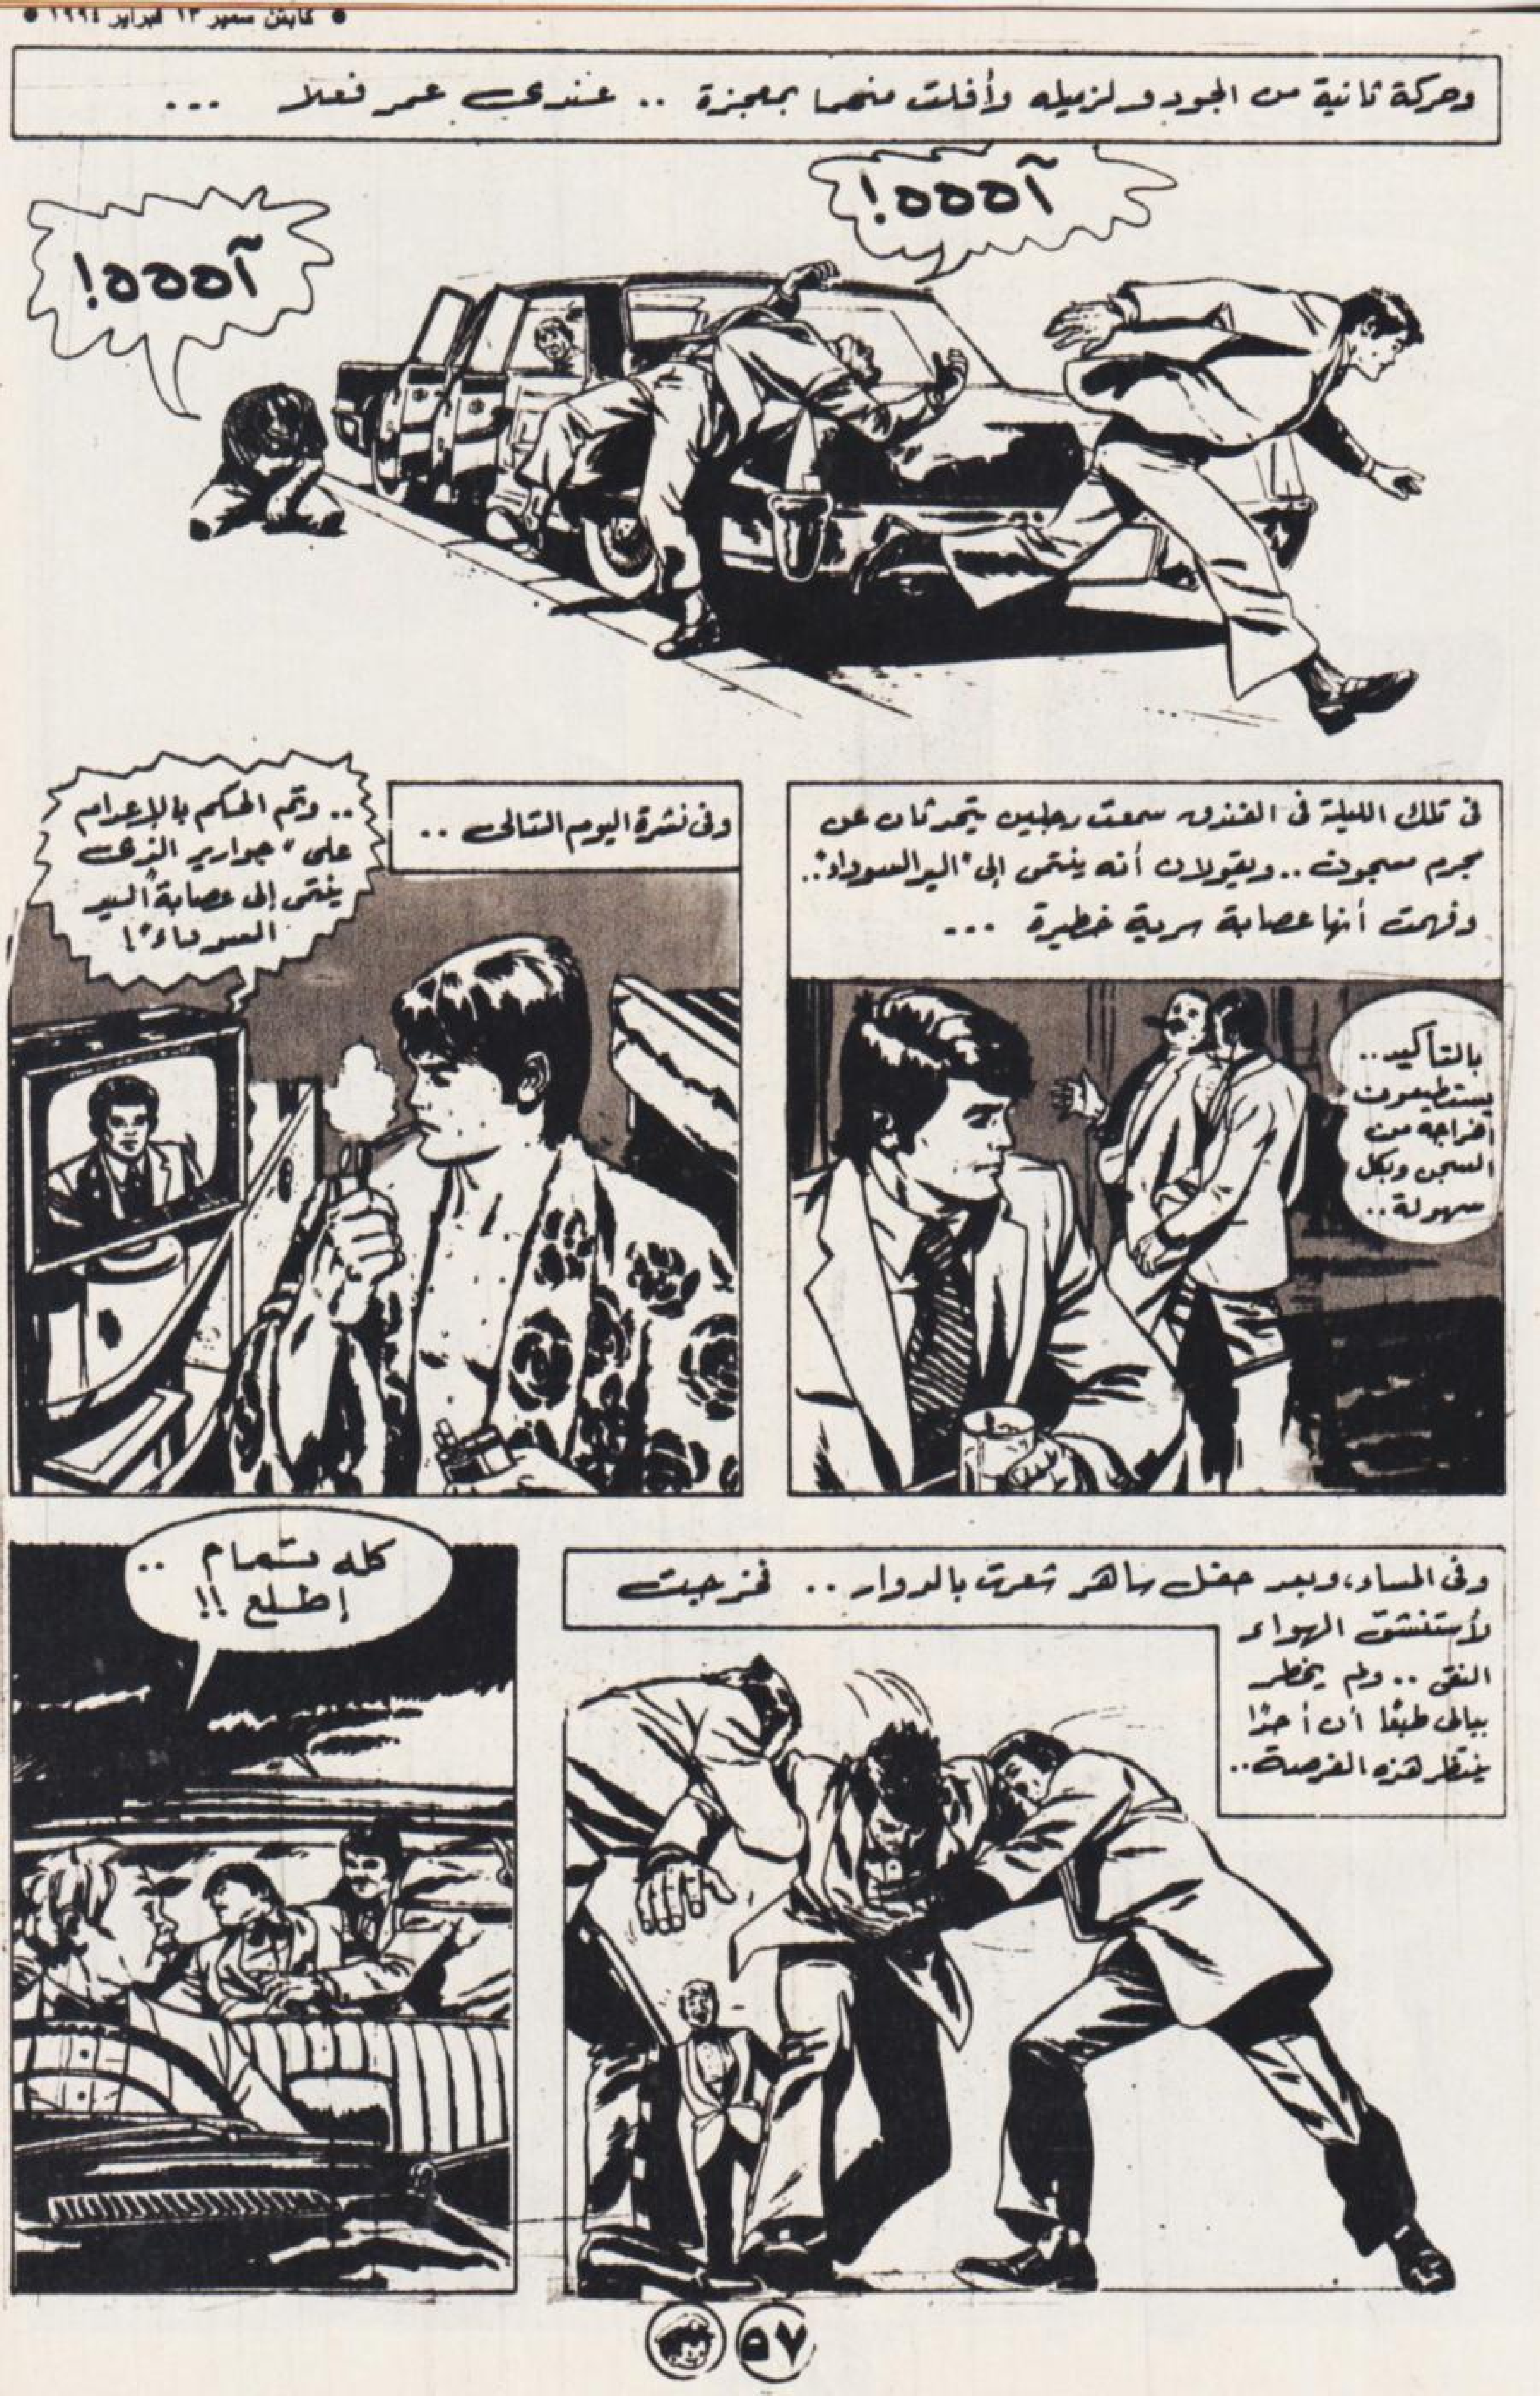 ● كابتن سمير ١٣ فبراير ١٩٩٤ ●
وحركة ثانية من الجودو لزميله وأفلت منهما بمعجزة .. عندي عمر فعلا ...
آههه!
آههه!
في تلك الليلة في الفندق سمعت رجلين يتحدثان عن
مجرم مسجون .. ويقولان أنه ينتمى إلى "اليد السوداء"..
وفهمت أنها عصابة سرية خطيرة ...
بالتأكيد..
يستطيعون
اخراجه من
السجن وبكل
سهولة..
وفى نشرة اليوم التالى ..
.. وتم الحكم بالإعدام
على "جوارير الذى
ينتمى إلى عصابة "اليد
السوداء"!
وفى المساء، وبعد حفل ساهر شعرت بالدوار .. فخرجت
لأستنشق الهواء
النقى .. ولم يخطر
ببالى طبعًا أن أحدًا
ينتظر هذه الفرصة..
كله تمام ..
إطلع !!
٥٧